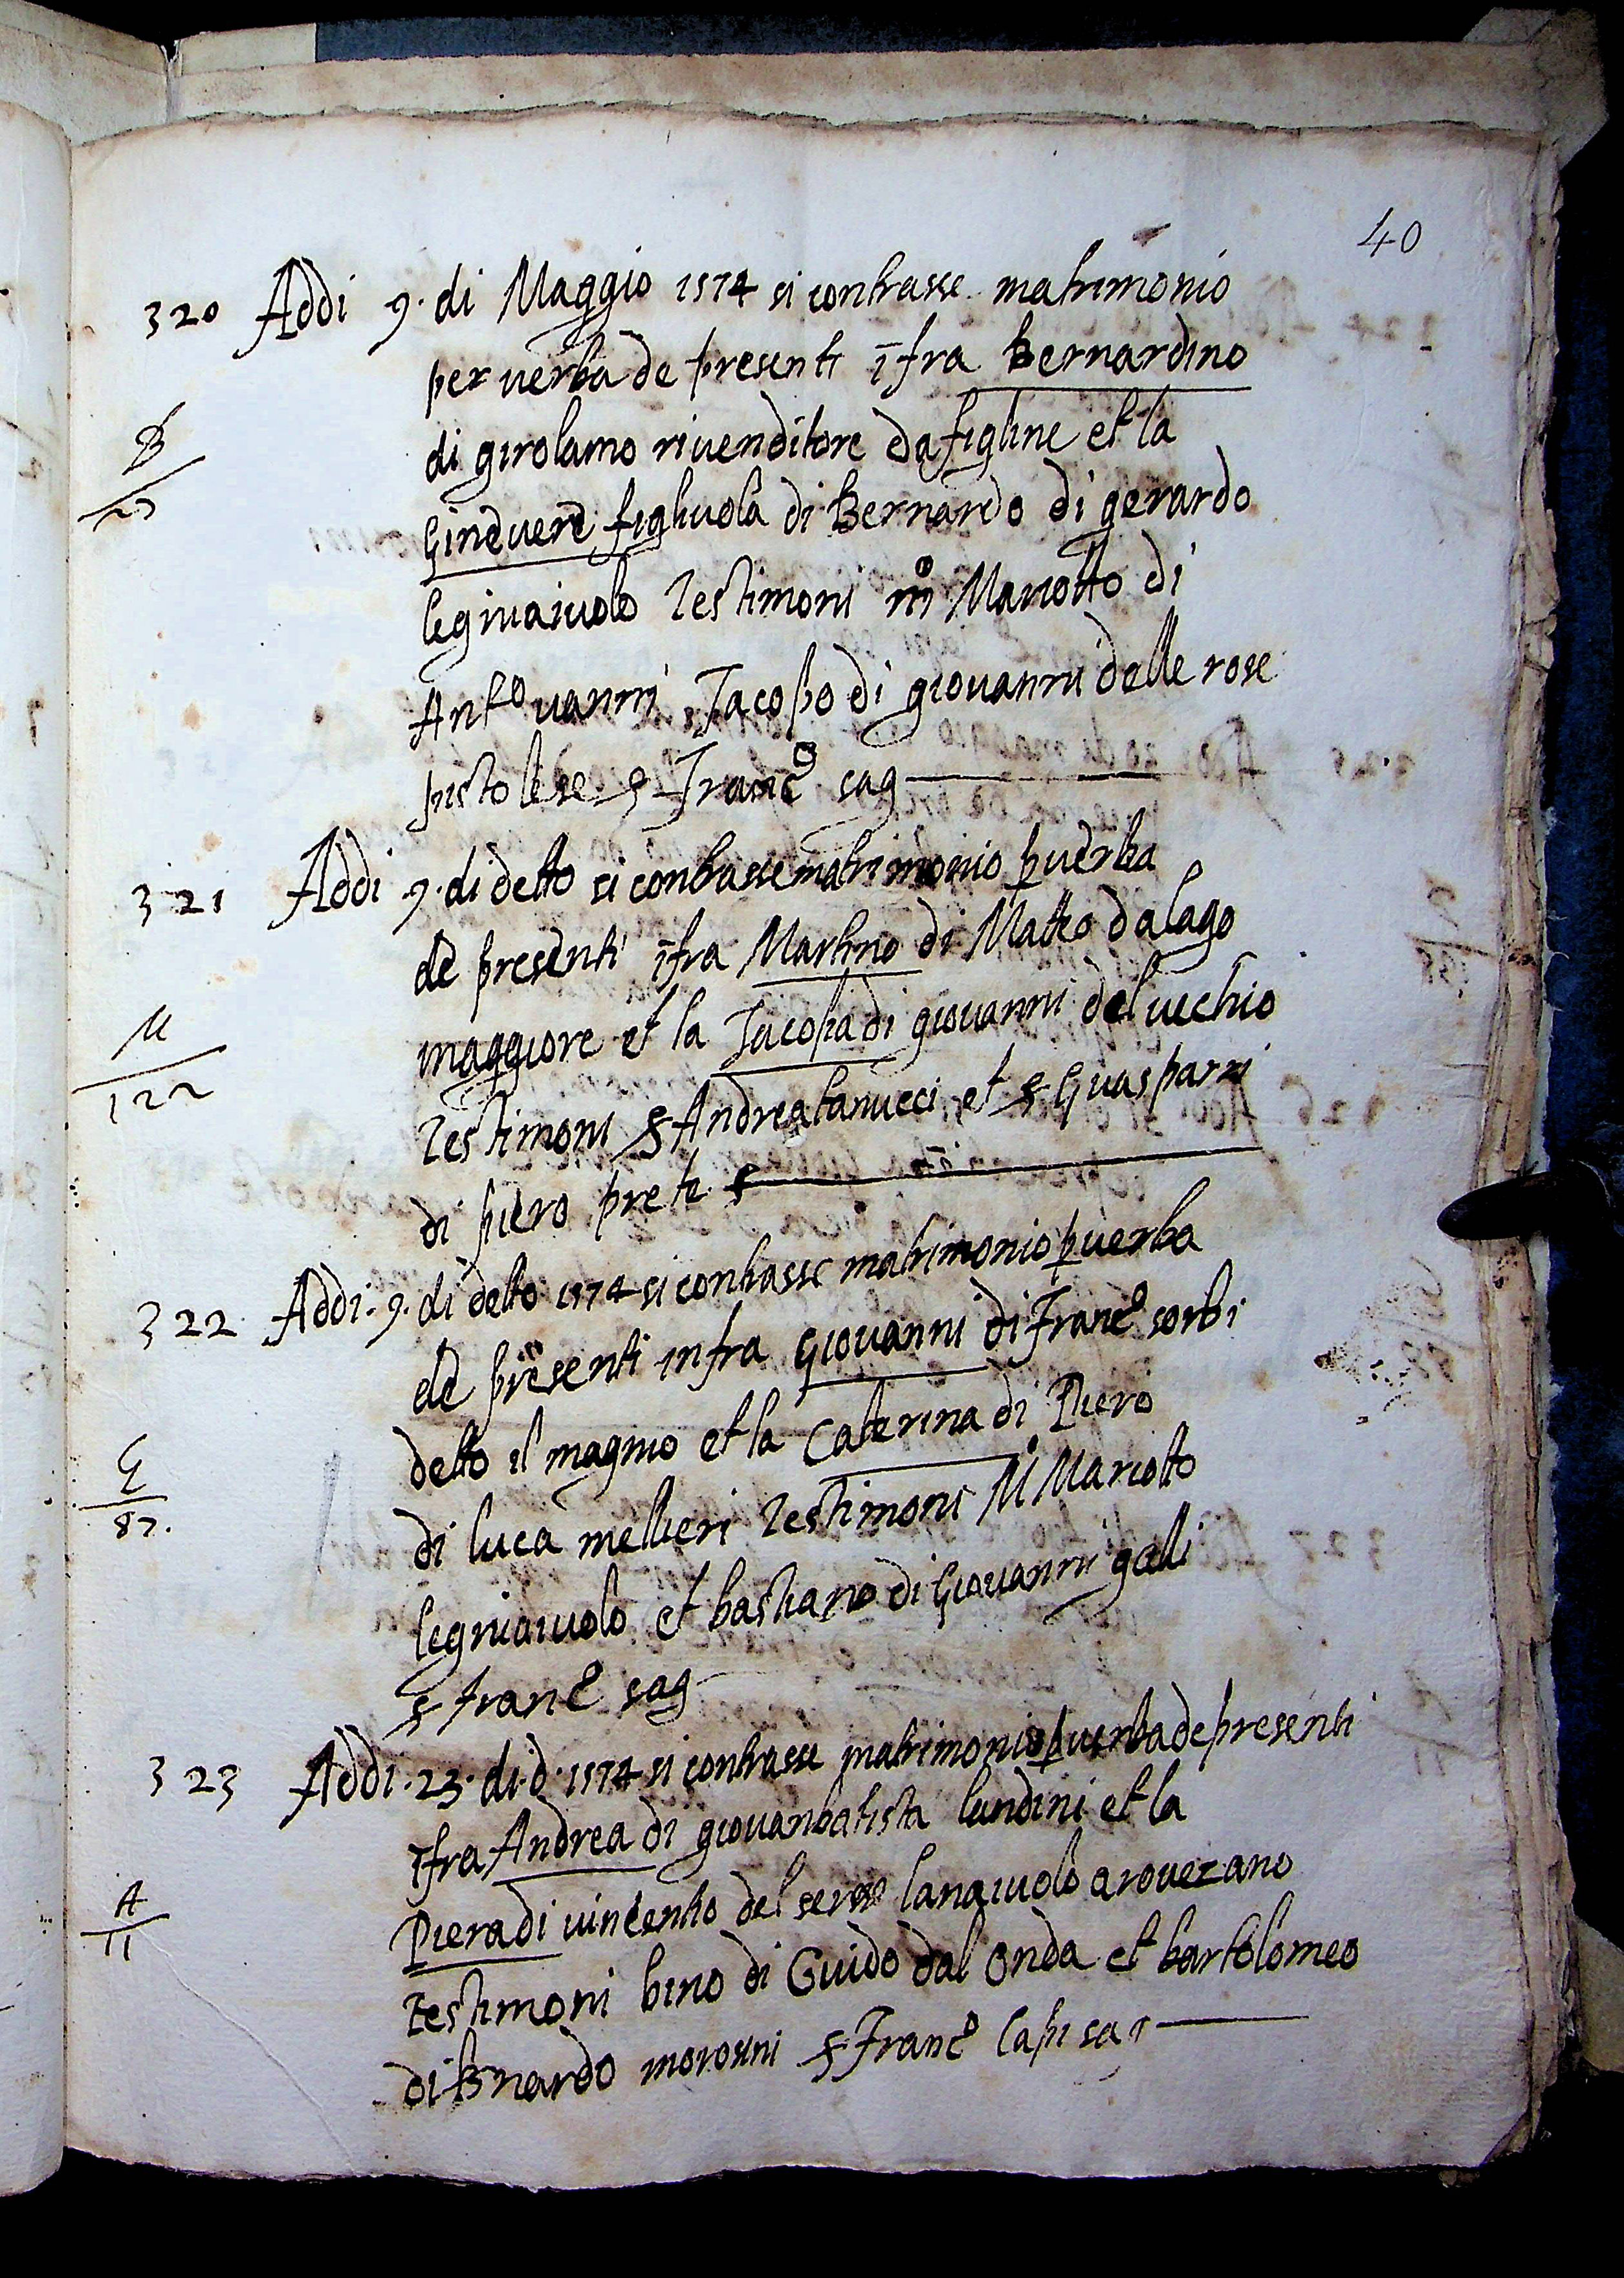 40
320 Addi 9. di Maggio 1574 si contrasse matrimonio
per verba de presenti ifra Bernardino
di girolamo rivenditore da figline et la
B
23
Ginevere figliuola di Bernardo di gerardo
legniaiuolo Testimoni mo Mariotto di
Anto vanni Jacopo di giovanni delle rose
pistolese Franco sag
321 Addi 9. di detto si contrasse matrimonio p verba
de presenti ifra Martino di Matteo dalago
M
122
maggiore et la Jacopa di giovanni del vechio
Testimoni s Andrea tanucci et s Guasparri
di piero prete
322 Addi. 9. di detto 1574 si contrasse matrimonio p verba
de presenti infra Giovanni di Franco sorbi
detto il magnio et la Caterina di Piero
G
87.
di luca mellieri Testimoni Mo Mariotto
legniaiuolo et bastiano di Giovanni galli
s Franco sag
323 Addi. 23. di. d. 1574 si contrasse matrimonio p verba de presenti
ifra Andrea di giovanbatista landini et la
A
11
Piera di vincentio del lanaiuolo a rovezano
Testimoni bino di Guido dal onda et bartolomeo
di Bnardo morosini s Franco Lapi sag